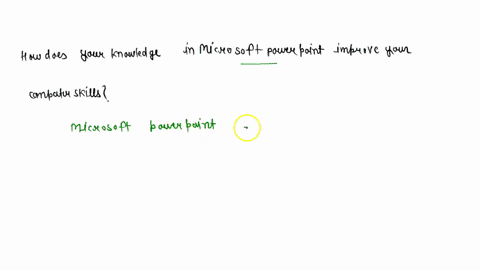 How does your knowledge in Microsoft powerpoint improve your
computer skills?
Microsoft powerpoint